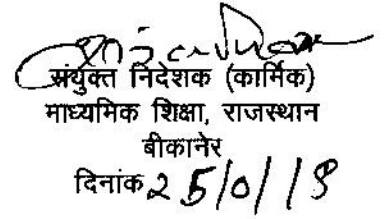 संयुक्त निदेशक (कार्मिक)
माध्यमिक शिक्षा, राजस्थान
बीकानेर
दिनांक 25/0/18